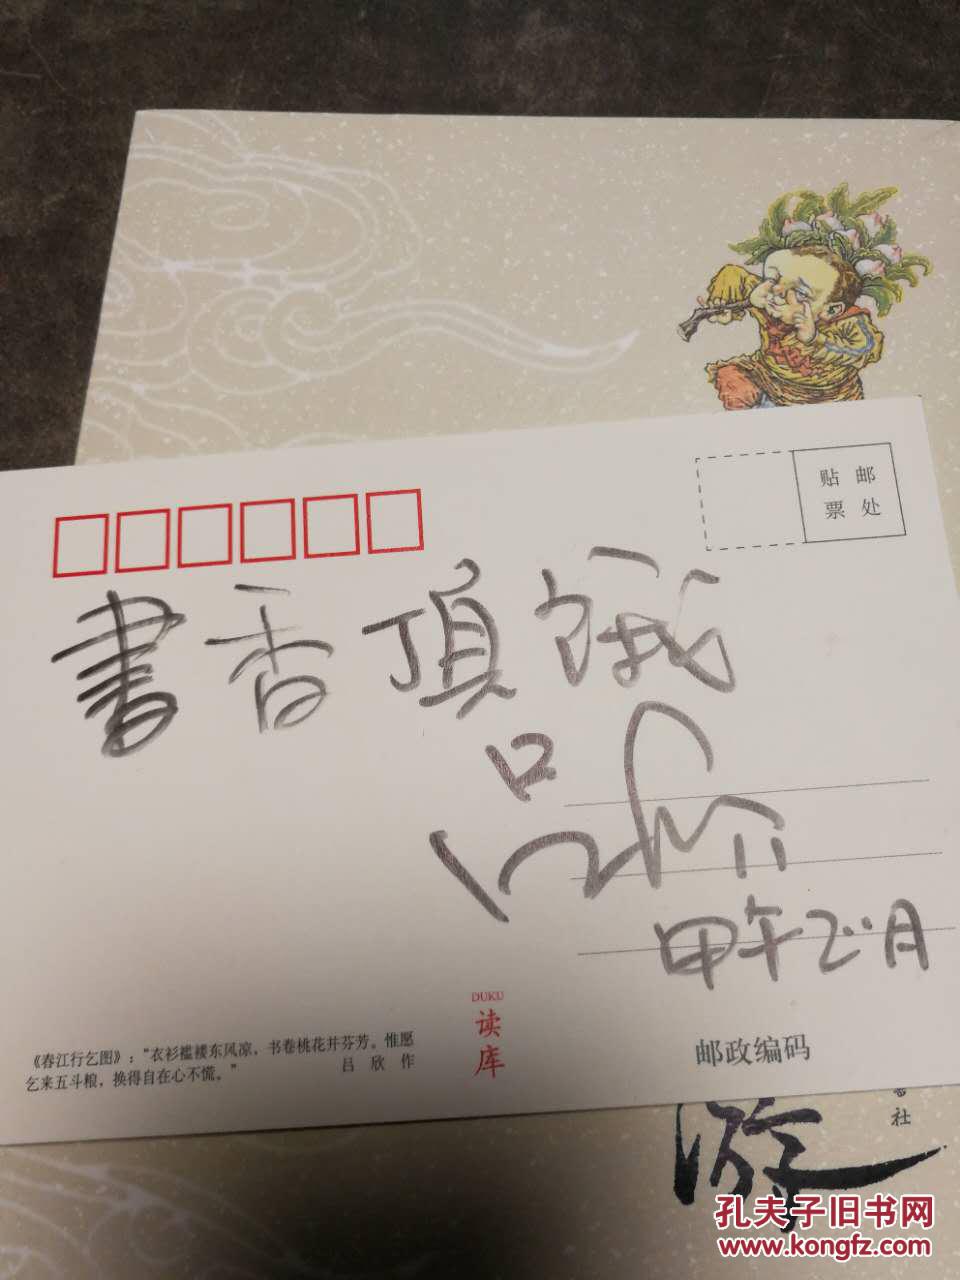 贴 邮
票 处
書香頂餓
吕
甲午正月
DUKU
读
库
《春江行乞图》：“衣衫褴褛东风凉，书卷桃花并芬芳。惟愿
乞来五斗粮，换得自在心不慌。” 吕 欣 作
邮政编码
社
游
孔夫子旧书网
www.kongfz.com